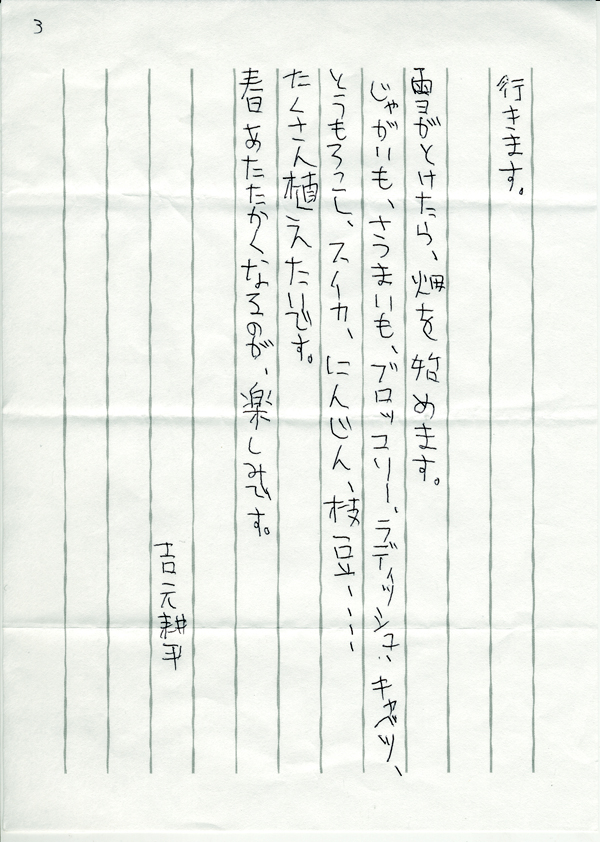 3
行きます。
雪がとけたら、畑を始めます。
じゃがいも、さつまいも、ブロッコリー、ラディッシュ、キャベツ、
とうもろこし、スイカ、にんじん、枝豆、、、、
たくさん植えたいです。
春あたたかくなるのが、楽しみです。
吉元耕平